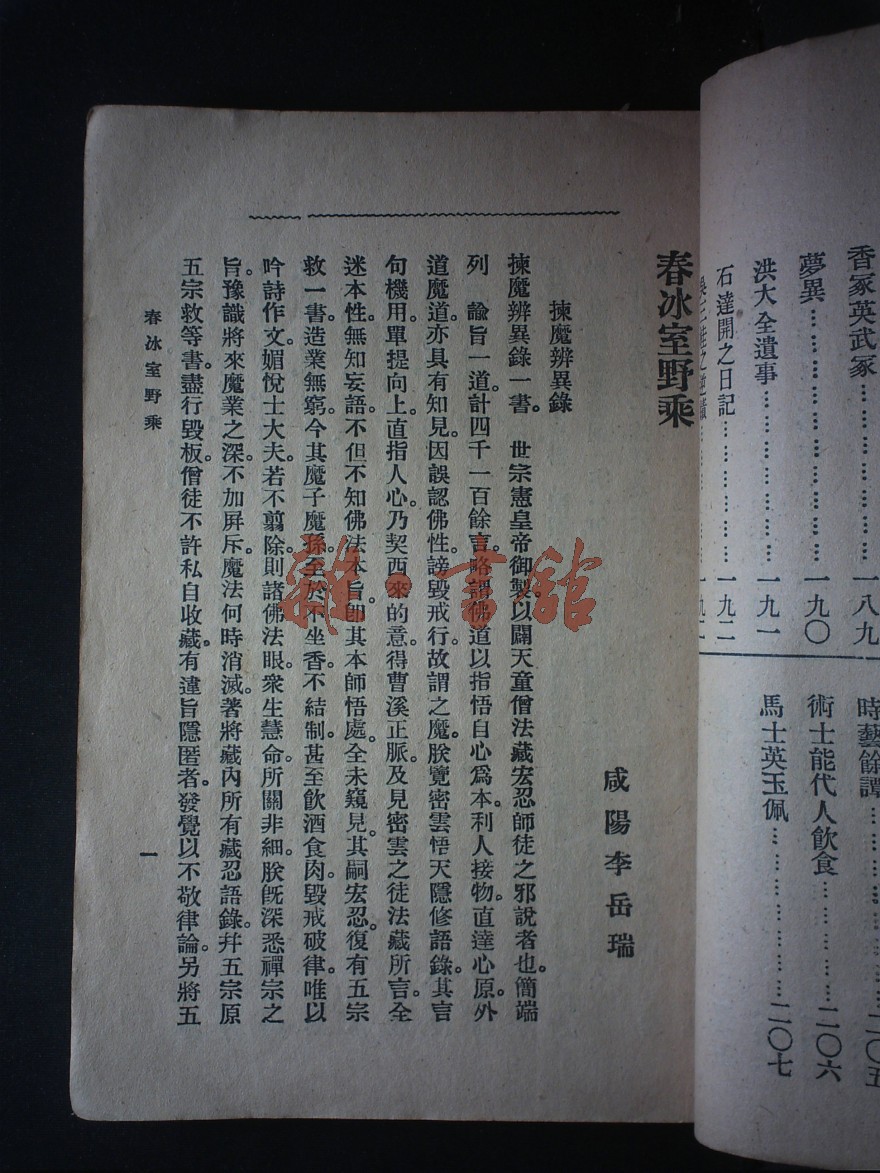 香冢英武冢………………………一八九
夢異………………………一九〇
洪大全遺事………………………一九一
石達開之日記………………………一九二
時藝餘譚………………………二〇五
術士能代人飲食………………………二〇六
馬士英玉佩………………………二〇七
春冰室野乘
咸陽李岳瑞
揀魔辨異錄
揀魔辨異錄一書。世宗憲皇帝御製。以闢天童僧法藏宏忍師徒之邪說者也。簡端
列　諭旨一道。計四千一百餘言。略謂佛道以指悟自心爲本。利人接物。直達心原。外
道魔道。亦具有知見。因誤認佛性。謗毀戒行。故謂之魔。朕覽密雲悟天隱修語錄。其言
句機用。單提向上。直指人心。乃契西來的意。得曹溪正脈。及見密雲之徒法藏所言。全
迷本性。無知妄語。不但不知佛法本旨。卽其本師悟處。全未窺見。其嗣宏忍。復有五宗
救一書。造業無窮。今其魔子魔孫。至於不坐香。不結制。甚至飲酒食肉。毀戒破律。唯以
吟詩作文。媚悅士大夫。若不翦除。則諸佛法眼。衆生慧命。所關非細。朕旣深悉禪宗之
旨。豫識將來魔業之深。不加屏斥。魔法何時消滅。著將藏內所有藏忍語錄。幷五宗原
五宗救等書。盡行毀板。僧徒不許私自收藏。有違旨隱匿者。發覺以不敬律論。另將五
春冰室野乘
一
雜·書館